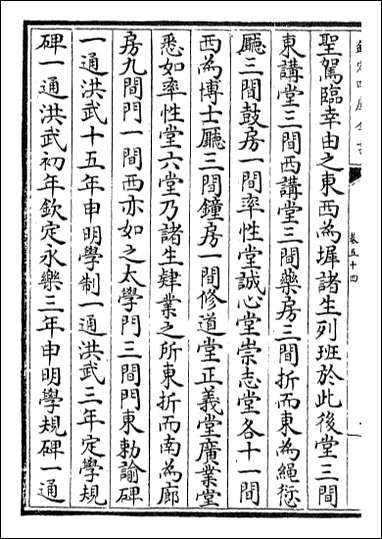 欽定四庫全書
卷五十四
聖駕臨幸由之東西為墀諸生列班於此後堂三間
東講堂三間西講堂三間藥房三間折而東為繩愆
廳三間鼓房一間率性堂誠心堂崇志堂各十一間
西為博士廳三間鐘房一間修道堂正義堂廣業堂
悉如率性堂六堂乃諸生肄業之所東折而南為廊
房九間門一間西亦如之太學門三間門東勅諭碑
一通洪武十五年申明學制一通洪武三年定學規
碑一通洪武初年欽定永樂三年申明學規碑一通